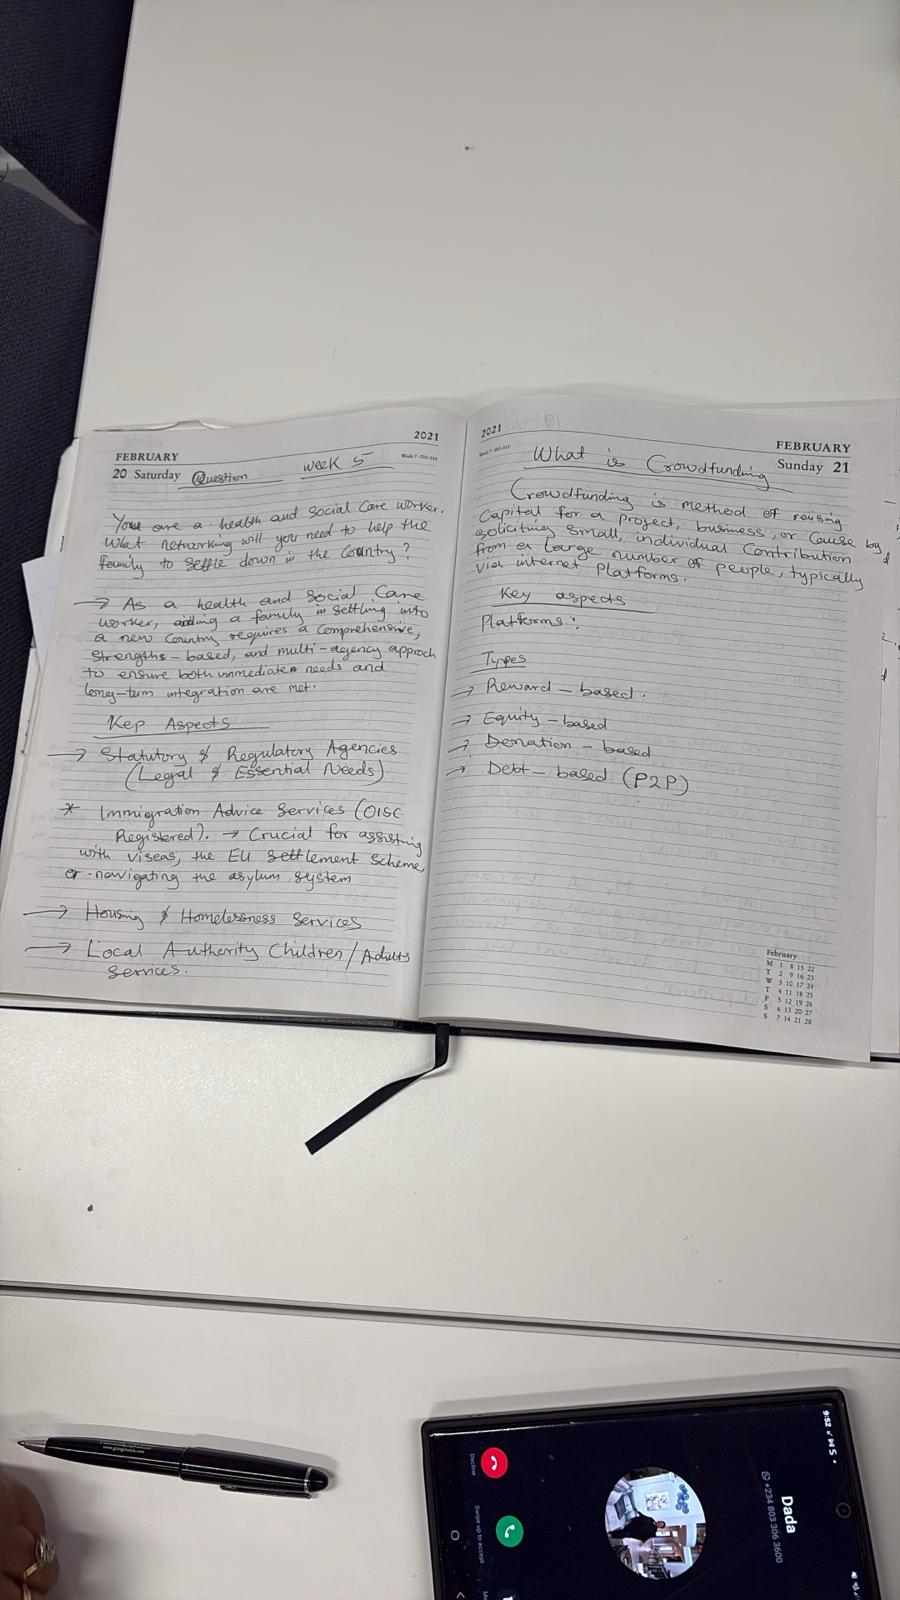 2021
FEBRUARY
20 Saturday Question Week 5
You are a health and Social Care worker.
What networking will you need to help the
family to settle down in the Country?
→ As a health and Social Care
worker, aiding a family in settling into
a new Country requires a Comprehensive,
Strengths-based, and multi-agency approch
to ensure both immediate needs and
long-term integration are met.
Key Aspects
→ Statutory & Regulatory Agencies
(Legal & Essential Needs)
* Immigration Advice Services (OISC
Registered). → Crucial for assisting
with viseas, the EU Settlement Scheme,
or navigating the asylum system
→ Housing & Homelessness Services
→ Local Authority Children/Adults
Services.
2021
FEBRUARY
Sunday 21
What is Crowdfunding
Crowdfunding is method of reising
Capital for a project, business, or Cause by
soliciting Small, individual Contribution
from a large number of people, typically
via internet Platforms.
Key aspects
Platforms:
Types
→ Reward-based.
→ Equity-based
→ Donation-based
→ Debt-based (P2P)
February
M 1 8 15 22
T 2 9 16 23
W 3 10 17 24
T 4 11 18 25
F 5 12 19 26
S 6 13 20 27
S 7 14 21 28
9:52
Dada
+234 803 306 3600
Decline
Swipe up to accept